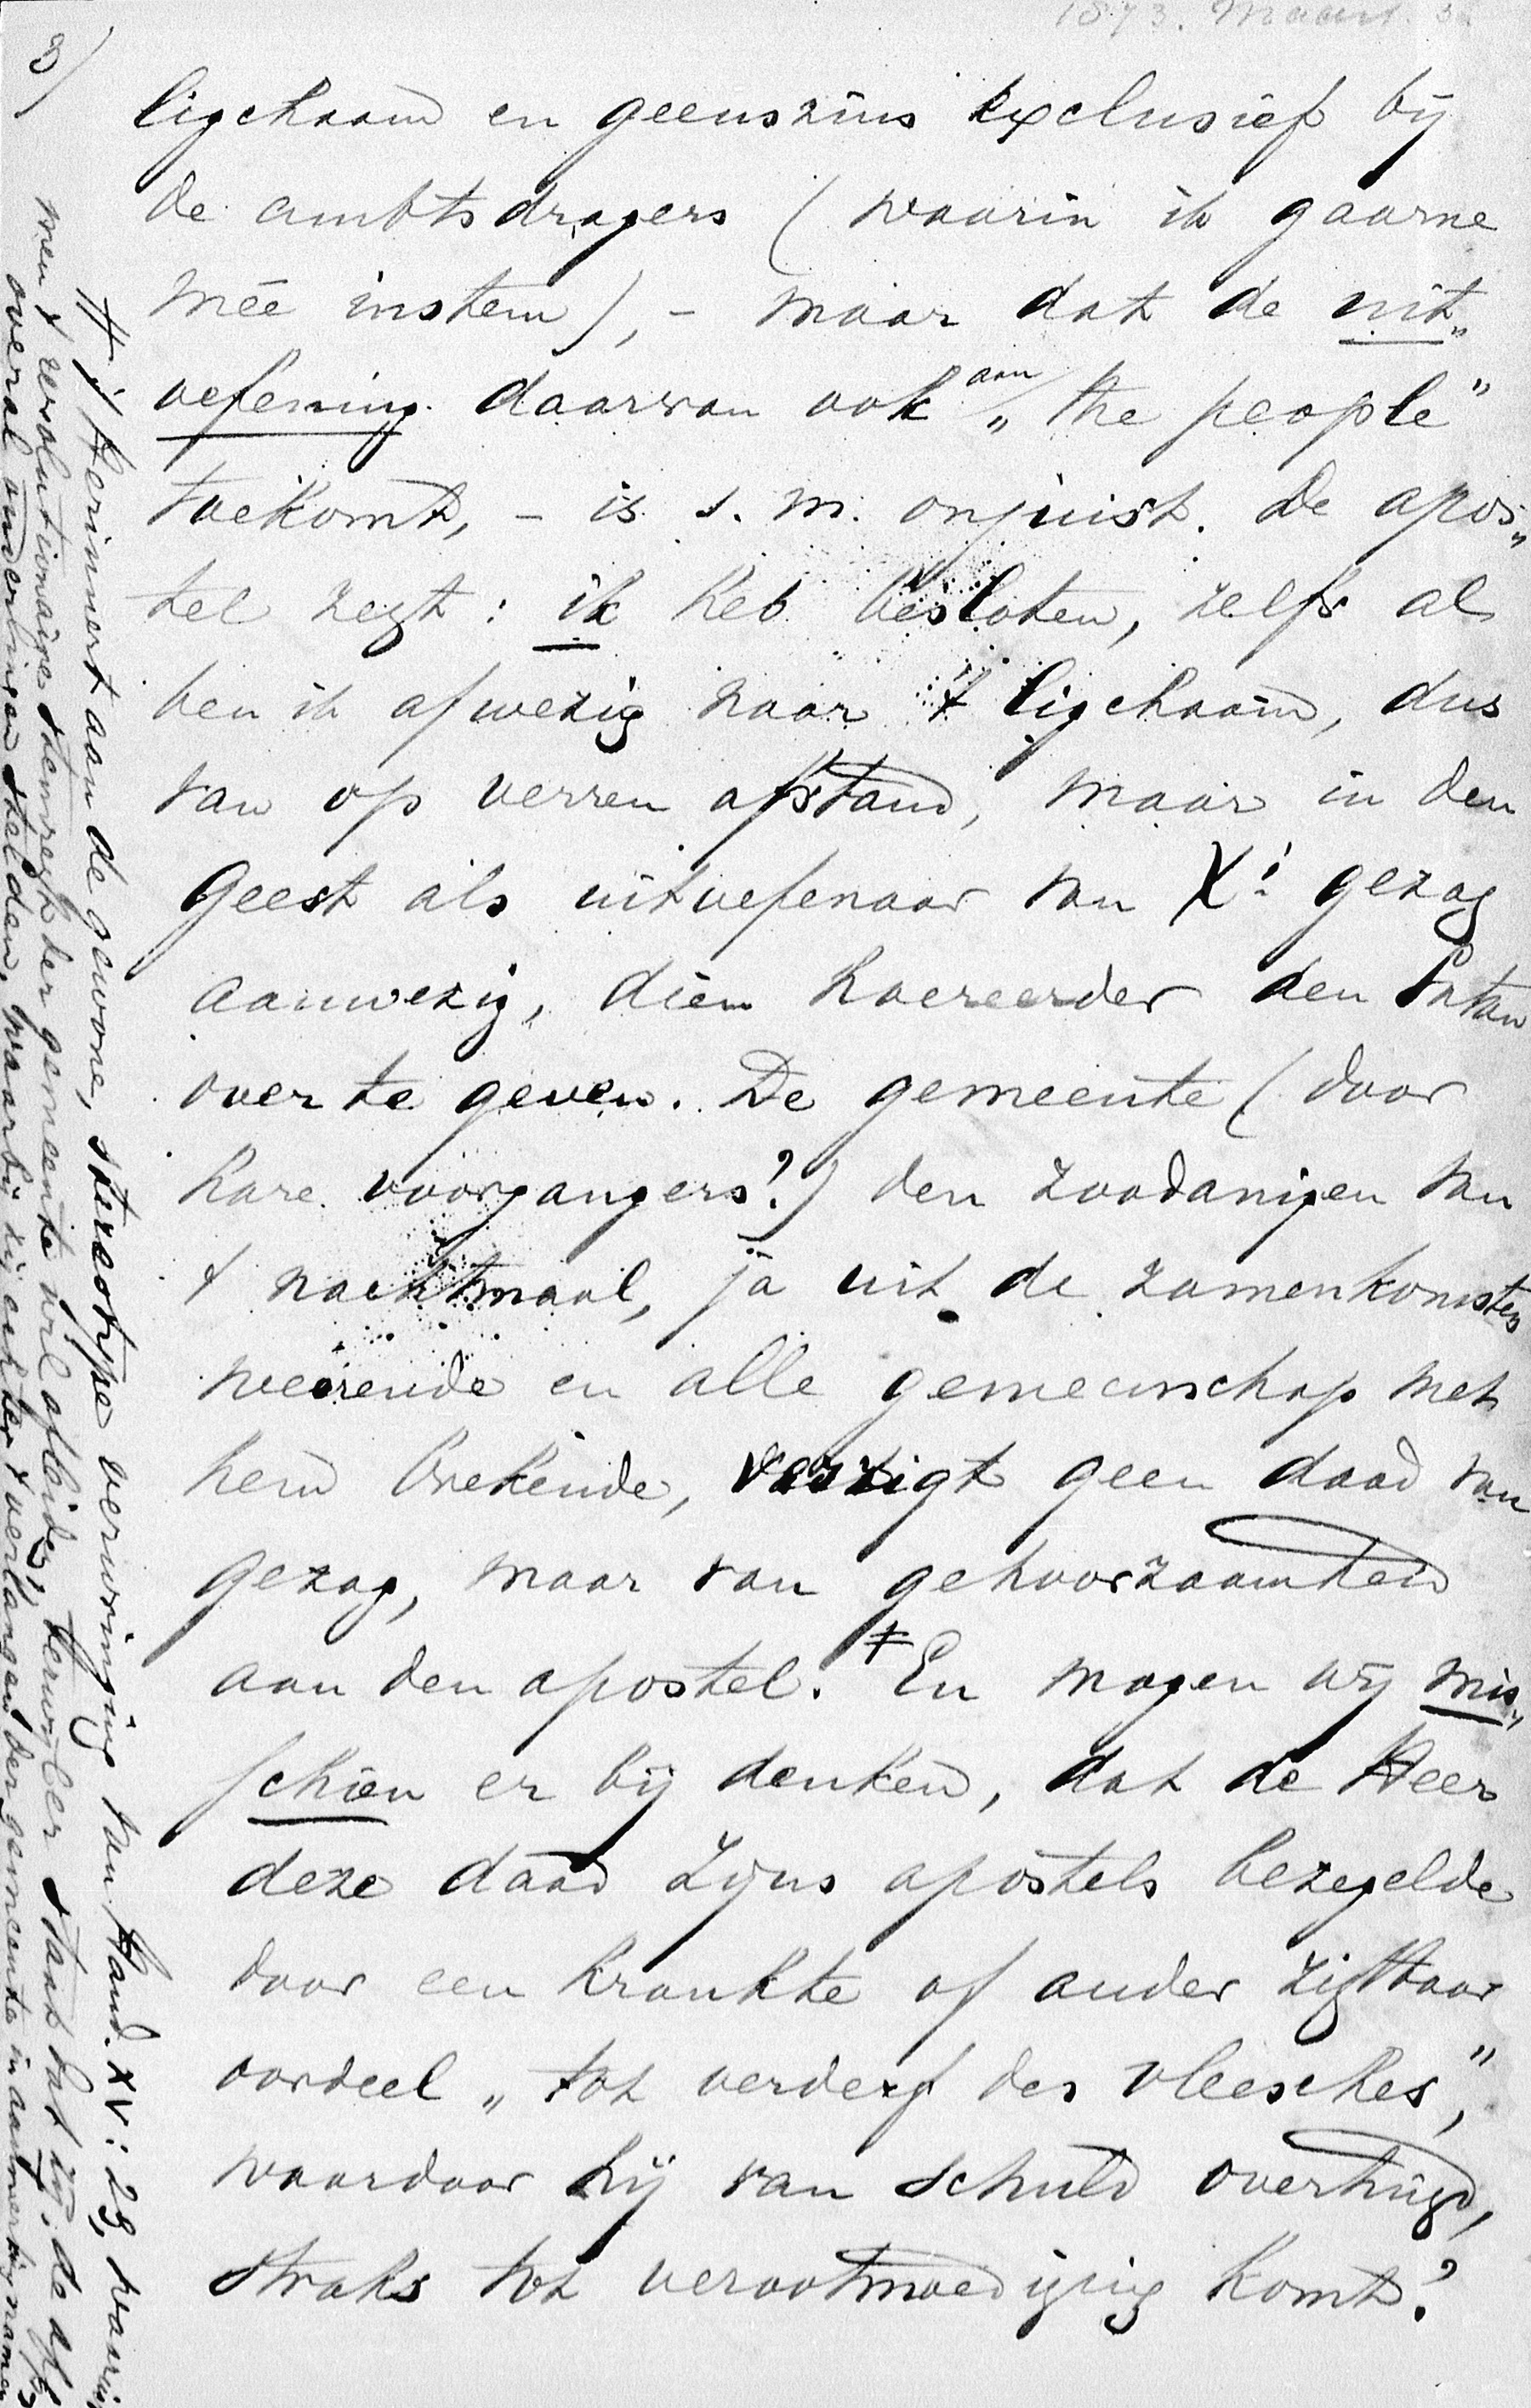 1873. Maart. 31
8)
ligchaam en geenszins exclusief bij
de ambtsdragers (waarin ik gaarne
mée instem), – maar dat de uit„
oefening daarvan ook aan „the people”
toekomt, – is s. m. onjuist. De apos„
tel zegt: ik heb besloten, zelfs al
ben ik afwezig naar 't ligchaam, dus
van op verren afstand, maar in den
Geest als uitoefenaar van X' gezag
aanwezig, dien hoereerder den Satan
over te geven. De gemeente (door
hare voorgangers?) den zoodanigen van
't nachtmaal, ja uit de zamenkomsten
weerende en alle gemeenschap met
hem brekende, verrigt geen daad van
gezag, maar van gehoorzaamheid
aan den apostel. ⧧ En mogen wij mis„
schien er bij denken, dat de Heer
deze daad zijns apostels bezegelde
door een krankte of ander zigtbaar
oordeel „tot verderf des vleesches”,
waardoor hij van schuld overtuigd,
straks tot verootmoediging komt?
⧧) Herinnert aan de gewone, stereotype verwringing van Hand. XV: 23, waarin
men 't revolutionaire stemregt der gemeente wil afleiden, terwijl er staat dat zij: de
overal ouderlingen stelden, waarbij zij echter 't verlangen der gemeente in aanmerking namen